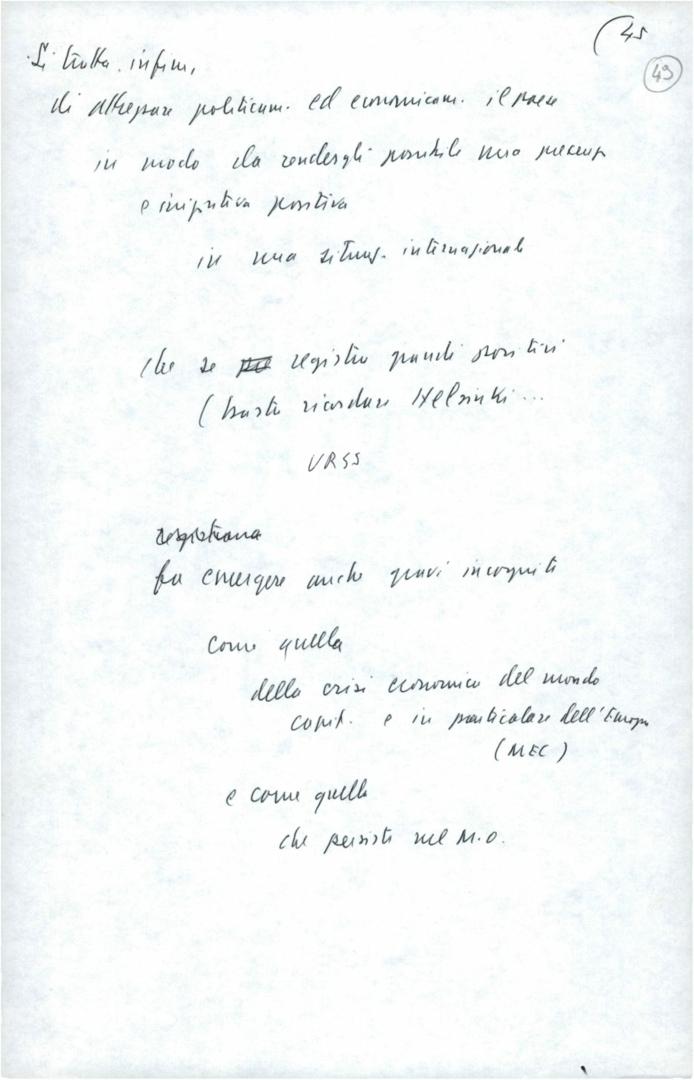 (45
49
Si tratta infine,
di attrezzare politicam. ed economicam. il paese
in modo da rendergli possibile una presenza
e iniziativa positiva
in una situaz. internazionale
che se registra grandi positivi
(basta ricordare Helsinki...
URSS
fa emergere anche gravi incognite
come quella
della crisi economica del mondo
capit. e in particolare dell'Europa
(MEC)
e come quella
che persiste nel M.O.